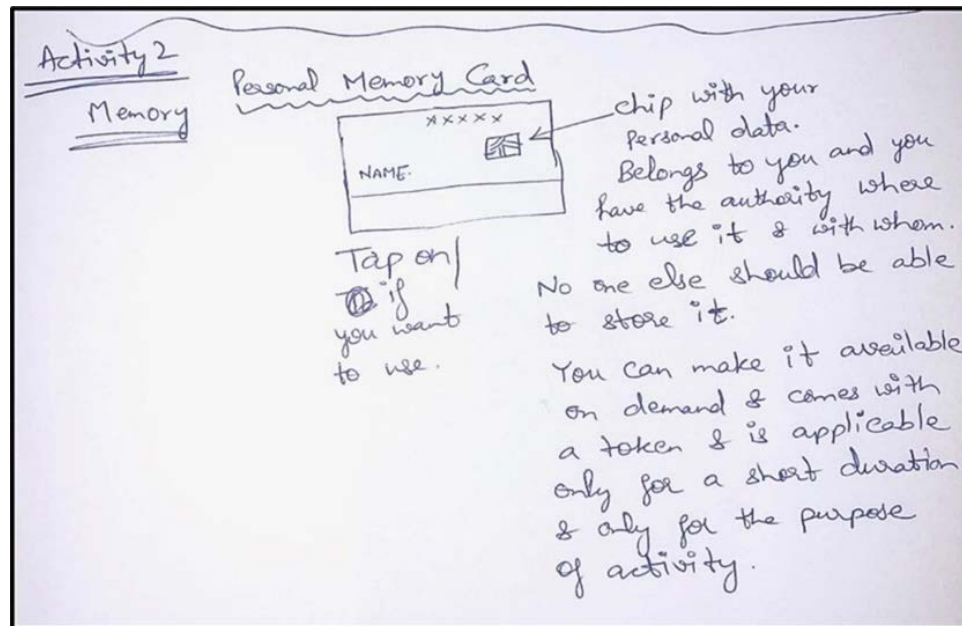 Activity 2
Memory
Personal Memory Card
xxxxx
NAME.
Tap on/
if
you want
to use.
chip with your
Personal data.
Belongs to you and you
have the authority where
to use it & with whom.
No one else should be able
to store it.
You can make it available
on demand & comes with
a token & is applicable
only for a short duration
& only for the purpose
of activity.